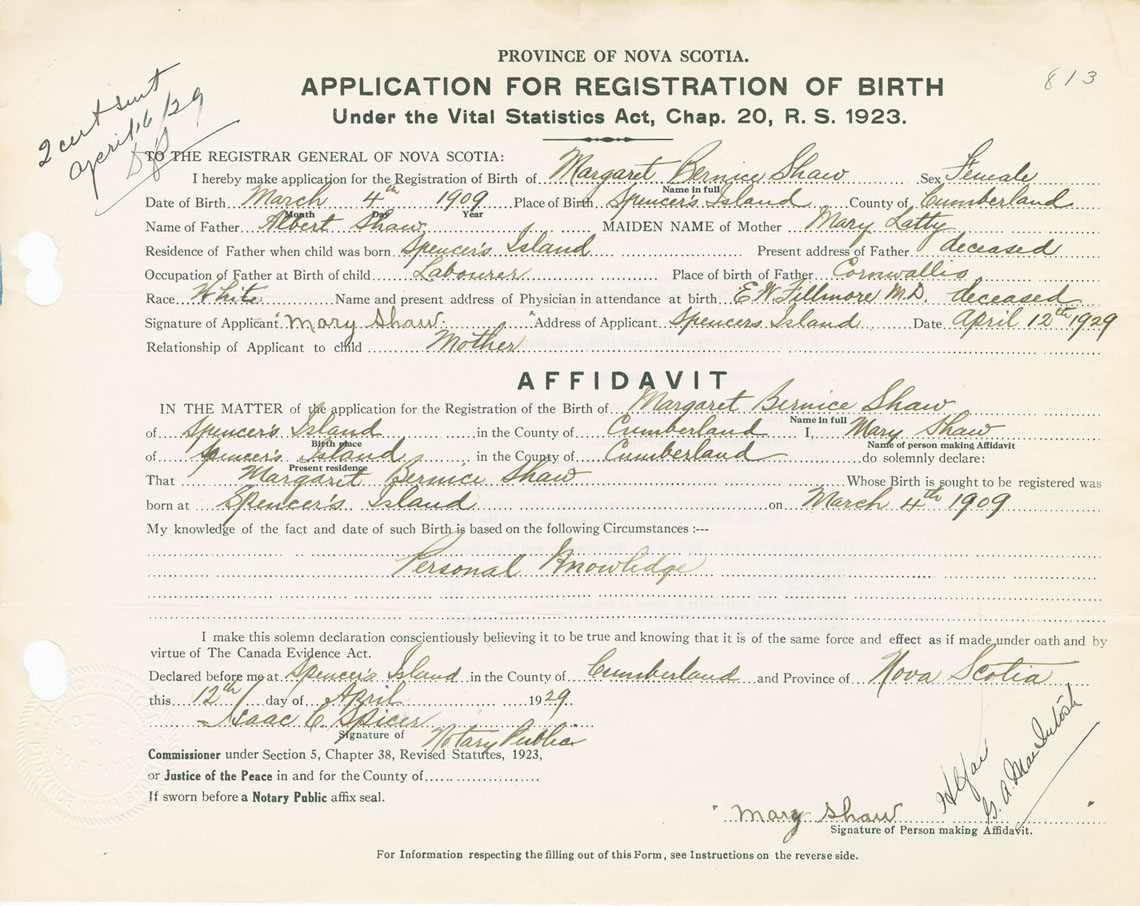 PROVINCE OF NOVA SCOTIA.
813
APPLICATION FOR REGISTRATION OF BIRTH
Under the Vital Statistics Act, Chap. 20, R. S. 1923.
2 cert sent
April 16/29
TO THE REGISTRAR GENERAL OF NOVA SCOTIA:
I hereby make application for the Registration of Birth of Margaret Bernice Shaw Sex Female
Name in full
Date of Birth March 4th 1909 Place of Birth Spencer's Island County of Cumberland
Month Day Year
Name of Father Albert Shaw MAIDEN NAME of Mother Mary Latty
Residence of Father when child was born Spencer's Island Present address of Father deceased
Occupation of Father at Birth of child Labourer Place of birth of Father Cornwallis
Race White Name and present address of Physician in attendance at birth E.W. Fillmore M.D. deceased
Signature of Applicant "Mary Shaw" Address of Applicant Spencers Island Date April 12th 1929
Relationship of Applicant to child Mother
AFFIDAVIT
IN THE MATTER of the application for the Registration of the Birth of Margaret Bernice Shaw
Name in full
of Spencer's Island in the County of Cumberland I, Mary Shaw
Birth place Name of person making Affidavit
of Spencer's Island in the County of Cumberland do solemnly declare:
Present residence
That Margaret Bernice Shaw Whose Birth is sought to be registered was
born at Spencer's Island on March 4th 1909
My knowledge of the fact and date of such Birth is based on the following Circumstances :---
Personal Knowledge
I make this solemn declaration conscientiously believing it to be true and knowing that it is of the same force and effect as if made under oath and by
virtue of The Canada Evidence Act.
Declared before me at Spencer's Island in the County of Cumberland and Province of Nova Scotia
this 12th day of April 1929.
Isaac C. Spicer
Signature of Notary Public
Commissioner under Section 5, Chapter 38, Revised Statutes, 1923,
or Justice of the Peace in and for the County of
If sworn before a Notary Public affix seal.
G. A. MacIntosh
"Mary Shaw"
Signature of Person making Affidavit.
For Information respecting the filling out of this Form, see Instructions on the reverse side.